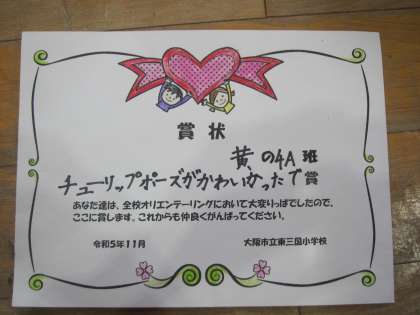 賞状
黄の4A 班
チューリップポーズがかわいかったで賞
あなた達は、全校オリエンテーリングにおいて大変りっぱでしたので、
ここに賞します。これからも仲良くがんばってください。
令和5年11月 大阪市立東三国小学校